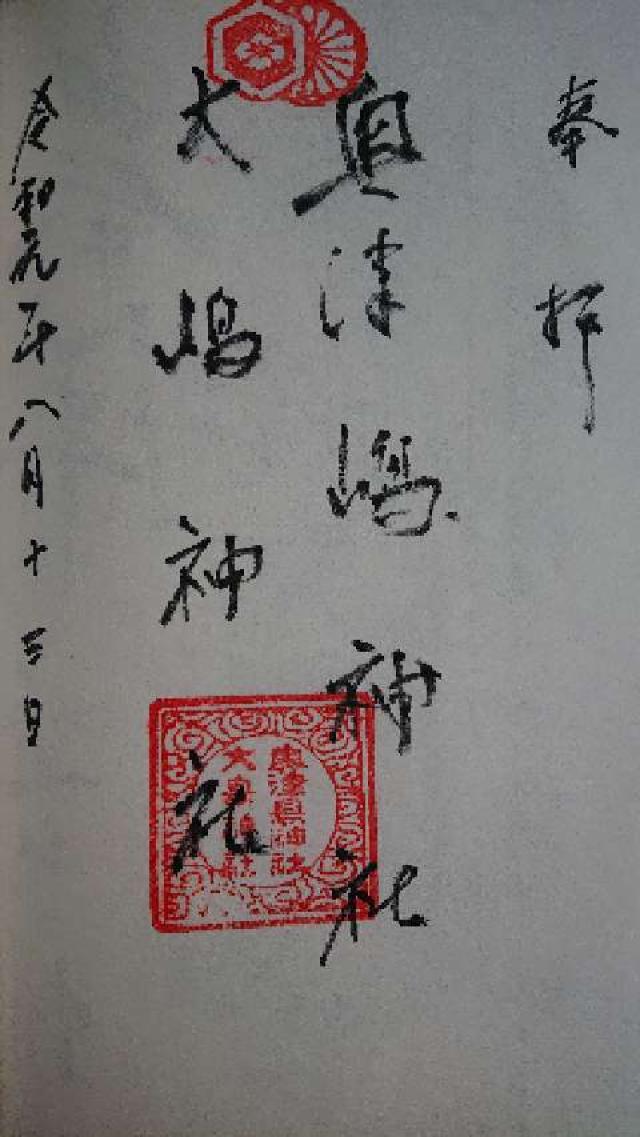 奉拝
奥津嶋神社
大嶋神社
奥津島神社
大島神社
令和元年八月十三日